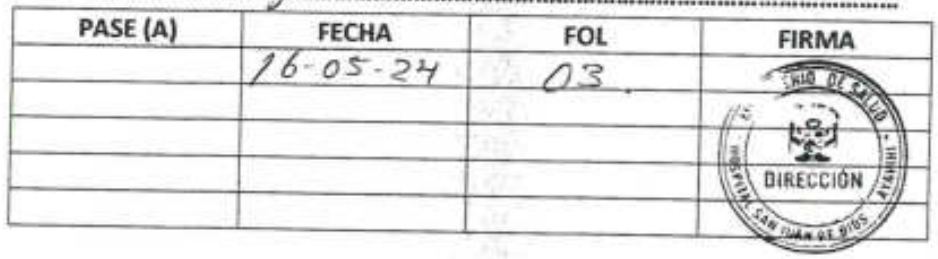 PASE (A) FECHA FOL FIRMA
16-05-24 03.
DE SALUD
DIRECCIÓN
HOSPITAL SAN JUAN DE DIOS